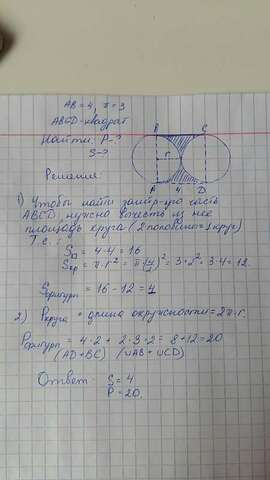 AB = 4, π = 3
ABCD - квадрат
Найти: P-?
S-?
Решение
B C
r
A 4 D
1) Чтобы найти заштр-ую часть
ABCD, нужно вычесть из нее
площадь круга (2 половины = 1 круг)
Т.е.:
S□ = 4·4 = 16
Sкр = π·r² = π(4/2)² = 3·2² = 3·4 = 12.
Sфигуры = 16 - 12 = 4
2) Pкруга = длина окружности = 2π·r.
Pфигуры = 4·2 + 2·3·2 = 8 + 12 = 20
(AD+BC) (∪AB+∪CD)
Ответ: S = 4
P = 20.